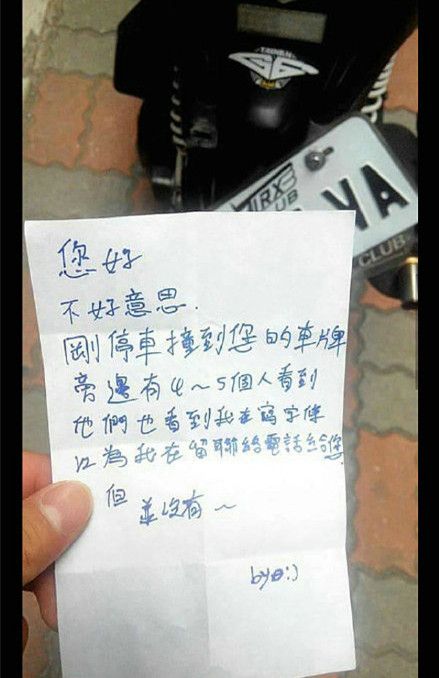 TAIWAN
G6
TTRX
CLUB
VA
CLUB
您好
不好意思.
剛停車撞到您的車牌
旁邊有4~5個人看到
他們也看到我在寫字條
以為我在留聯絡電話給您
但
並沒有~
by